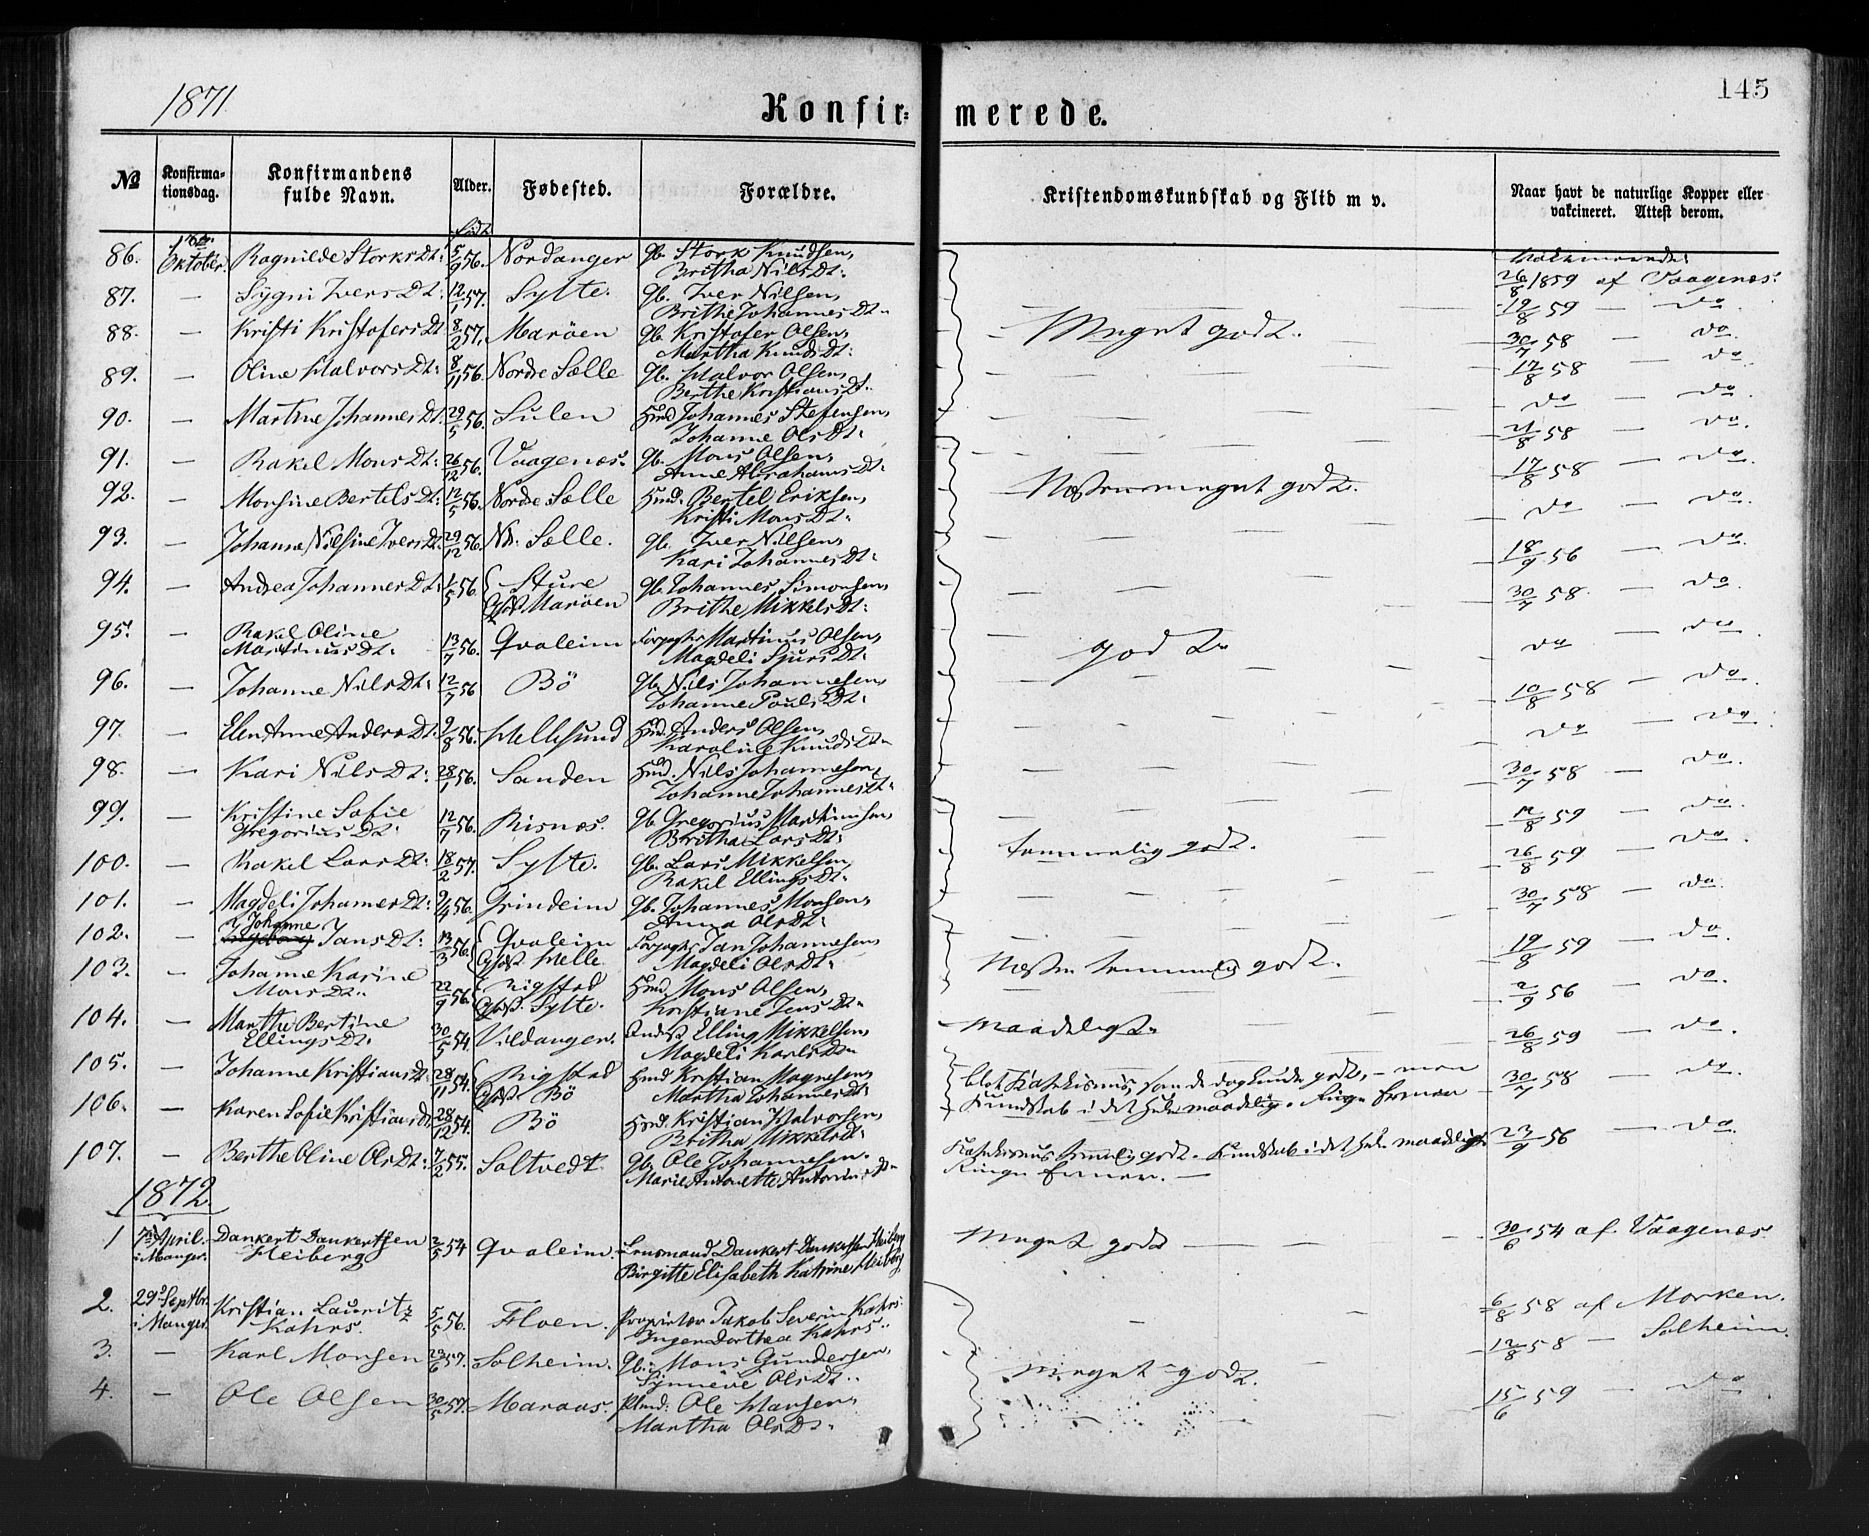 1871
Konfir-
merede.
145
№
Konfirma-
tionsdag.
Konfirmandens
fulde Navn.
Alder.
Fødested.
Forældre.
Kristendomskundskab og Flid m v.
Naar havt de naturlige Kopper eller
vakcineret. Attest derom.
Født
86. 1ste Oktober. Ragnilde StorksDt: 5/9 56. Nordanger Gb. Stork Knudsen,
Britha NilsDt:
26/8 1859 af Vaagenæs.
87. — Sygni IversDt: 12/1 57. Sylte. Gb. Iver Nilsen,
Brithe JohannesDt:
19/8 59 — do
88. — Kristi KristofersDt 8/2 57. Marøen Gb. Kristofer Olsen,
Martha KnudsDt:
Meget godt.
30/7 58 — do.
89. — Oline HalvorsDt: 8/11 56. Nordre Sælle Gb. Halvor Olsen,
Berthe KristiansDt.
17/8 58 — do
90. — Martine JohannesDt: 29/5 56. Sulen Hmd. Johannes Stefensen,
Johanne OlsDt:
do — do
91. — Rakel MonsDt: 26/12 56. Vaagenæs. Gb. Mons Olsen,
Anne AbrahamsDt:
21/8 58 — do.
92. — Monsine BertelsDt: 12/5 56. Nordre Sælle Hmd. Bertel Eriksen,
Kristi MonsDt:
Næsten meget godt.
17/8 58 — do.
93. — Johanne Nilsine IversDt: 29/12 56. Nd. Sælle. Gb. Iver Nilsen,
Kari JohannesDt:
do — do.
94. — Andrea JohannesDt: 1/5 56. Sture
Marøen Gb. Johannes Simonsen,
Brithe MikkelsDt:
18/9 56 — do.
95. — Rakel Oline
MartinusDt: 13/7 56. Qvaleim Martinus Olsen,
Magdeli SjursDt:
godt
30/7 58. — do.
96. — Johanne NilsDt: 12/7 56 Bö Gb. Nils Johannesen,
Johanne PoulsDt:
do — do.
97. — Elen Anne AndersDt. 9/8 56. Hellesund Hmd. Anders Olsen,
Karoline KnudsDt
10/8 58 — do.
98. — Kari NilsDt: 28/1 56. Sanden Hmd. Nils Johannesen,
Johanne JohannesDt:
do — do
99. — Kristine Sofie
GregoriusDt. 12/7 56. Risnæs. Gb. Gregorius Martinusen,
Britha LarsDt:
30/7 58 — do.
100. — Rakel LarsDt: 18/2 57. Sylte. Gb. Lars Mikkelsen,
Rakel EllingsDt:
temmelig godt.
12/8 59 — do.
101. — Magdeli JohannesDt: 9/4 56. Grindeim Gb. Johannes Monsen,
Anna OlsDt:
26/8 59 — do.
102. — Johanne
JansDt: 13/3 56. Qvaleim
Helle Jan Johannesen,
Magdeli OlsDt:
30/7 58 — do.
103. — Johanne Karine
MonsDt: 22/9 56. Rigstad
Sylte. Hmd. Mons Olsen,
Kristiane JensDt:
Næsten temmelig godt.
19/8 59 — do.
2/9 56 — do.
104. — Marthe Bertine
EllingsDt. 30/5 54. Vildanger. Elling Mikkelsen,
Magdeli KarlsDt
maadeligt.
26/8 59 — do.
105. — Johanne KristiansDt: 28/11 54. Rigstad
Bö Hmd Kristian Magnesen,
Martha JohannesDt:
30/7 58 — do.
106. — Karen Sofie KristiansDt: 28/12 54. Bö Hmd. Kristian Halvorsen,
Britha MikkelsDt:
107. — Berthe Oline OlsDt: 7/2 55. Soltvedt. Gb. Ole Johannesen.
Marie Antonette
Katekismus temmelig godt. Kundskab i det hele maadelig.
Ringe Evner. —
23/9 56 — do.
1872
1 7de April.
i Manger. Dankert Dankertsen
Heiberg 2/5 54 Qvaleim. Lensmand Dankert Dankertsen Heiberg
Birgitte Elisabeth Katrine Heiberg
Meget godt
30/6 54 af Vaagenæs
2. 29de Septbr.
i Manger. Kristian Lauritz
Kahrs. 5/5 56. Floen. Proprietær Jakob Severin Kahrs.
Inger Dorthea Kahrs.
6/8 58 af Morken.
3. — Karl Monsen 29/6 57. Solheim. Gb. Mons Gundersen,
Synneve OlsDt.
Meget godt.
12/8 58 — Solheim.
4. — Ole Olsen 30/5 57. Maraas. Plmd: Ole Hansen,
Martha OlsDt.
15/6 59 — do